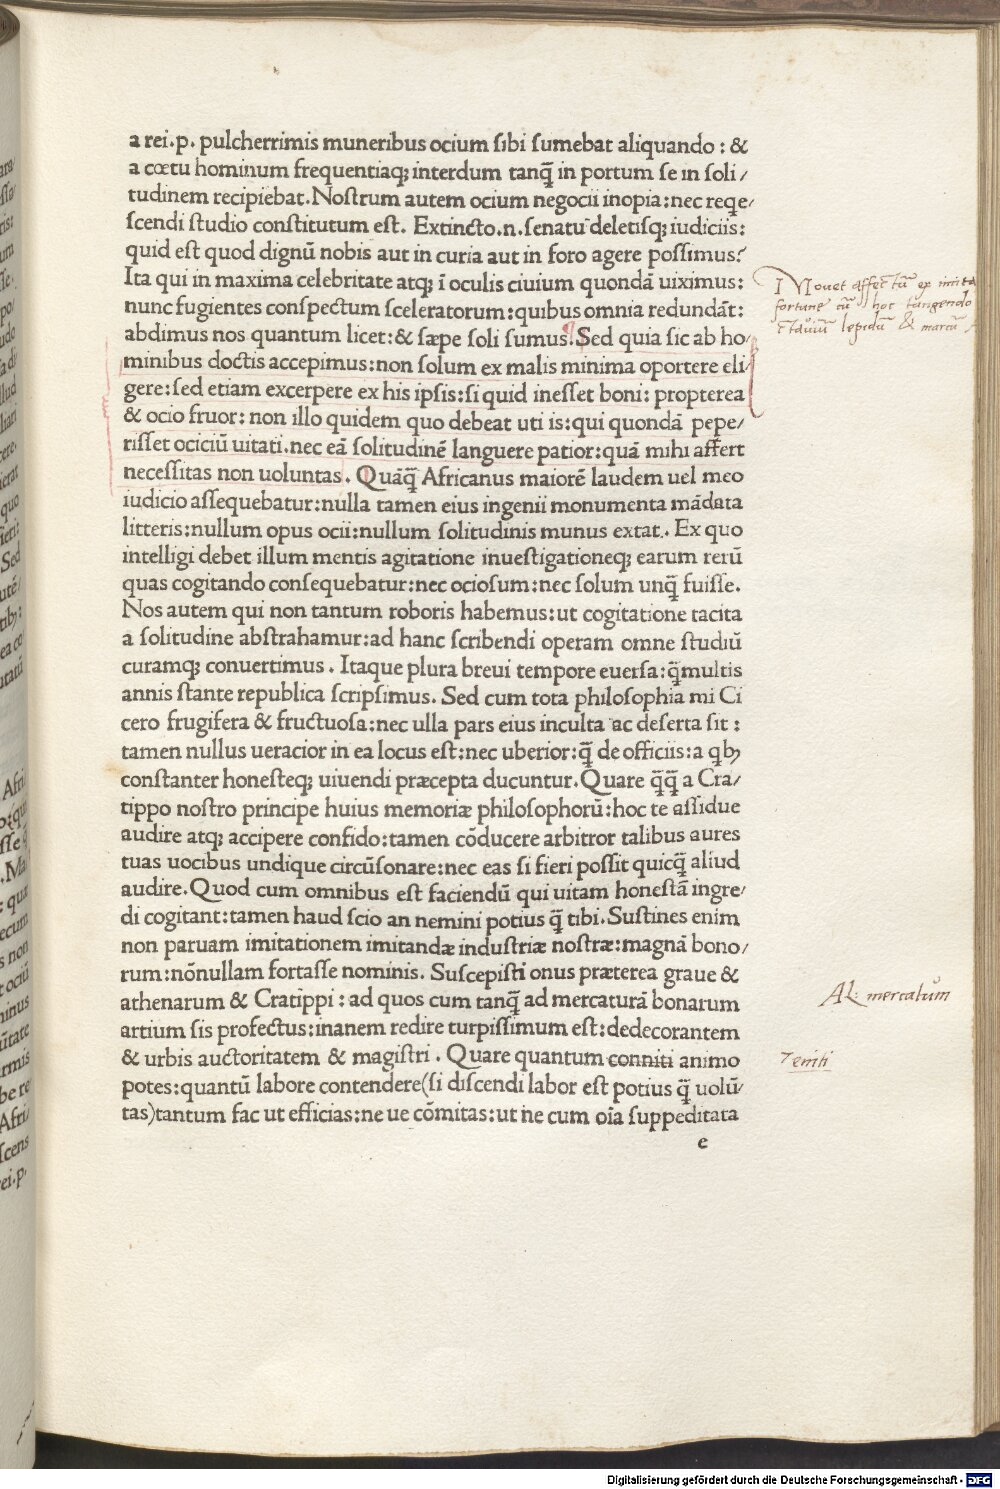 a rei.p. pulcherrimis muneribus ocium ſibi ſumebat aliquando : &
a cœtu hominum frequentiaqꝫ interdum tanq̃ in portum ſe in ſoli/
tudinem recipiebat.Noſtrum autem ocium negocii inopia:nec reqe/
ſcendi ſtudio conſtitutum eſt. Extincto.n.ſenatu deletiſqꝫ iudiciis:
quid eſt quod dignũ nobis aut in curia aut in foro agere poſſimus?
Ita qui in maxima celebritate atqꝫ ĩ oculis ciuium quondã uiximus:
nunc fugientes conſpectum ſceleratorum:quibus omnia redundãt:
abdimus nos quantum licet:& ſæpe ſoli ſumus.Sed quia ſic ab ho
minibus doctis accepimus:non ſolum ex malis minima oportere eli/
gere:ſed etiam excerpere ex his ipſis:ſi quid ineſſet boni: propterea
& ocio fruor: non illo quidem quo debeat uti is:qui quondã pepe/
riſſet ociciũ uitati.nec eã ſolitudinẽ languere patior:quã mihi affert
neceſſitas non uoluntas. Quãq̃ Africanus maiorẽ laudem uel meo
iudicio aſſequebatur:nulla tamen eius ingenii monumenta mãdata
litteris:nullum opus ocii:nullum ſolitudinis munus extat. Ex quo
intelligi debet illum mentis agitatione inueſtigationeqꝫ earum rerũ
quas cogitando conſequebatur:nec ocioſum:nec ſolum unq̃ fuiſſe.
Nos autem qui non tantum roboris habemus:ut cogitatione tacita
a ſolitudine abſtrahamur:ad hanc ſcribendi operam omne ſtudiũ
curamqꝫ conuertimus . Itaque plura breui tempore euerſa:q̃multis
annis ſtante republica ſcripſimus. Sed cum tota philoſophia mi Ci
cero frugifera & fructuoſa:nec ulla pars eius inculta ac deſerta ſit :
tamen nullus ueracior in ea locus eſt:nec uberior:q̃ de officiis:a qbꝫ
conſtanter honeſteqꝫ uiuendi præcepta ducuntur.Quare q̃q̃ a Cra/
tippo noſtro principe huius memoriæ philoſophorũ:hoc te aſſidue
audire atqꝫ accipere confido:tamen cõducere arbitror talibus aures
tuas uocibus undique circũſonare:nec eas ſi fieri poſſit quicq̃ aliud
audire.Quod cum omnibus eſt faciendũ qui uitam honeſtã ingre/
di cogitant:tamen haud ſcio an nemini potius q̃ tibi.Suſtines enim
non paruam imitationem imitandæ induſtriæ noſtræ:magnã bono/
rum:nõnullam fortaſſe nominis. Suſcepiſti onus præterea graue &
athenarum & Cratippi : ad quos cum tanq̃ ad mercaturã bonarum
artium ſis profectus:inanem redire turpiſſimum eſt:dedecorantem
& urbis auctoritatem & magiſtri . Quare quantum conniti animo
potes:quantũ labore contendere(ſi diſcendi labor eſt potius q̃ uolũ/
tas)tantum fac ut efficias:ne ue cõmitas:ut ne cum oĩa ſuppeditata
e
Mouet affectũ ex
fortune cũ hoc tangendo
lepidũ & marcũ
AL: mercatum
eniti
Digitalisierung gefördert durch die Deutsche Forschungsgemeinschaft - DFG